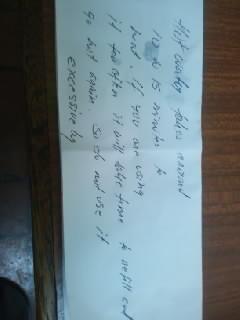 Hot water takes around
10 to 15 minutes to
heat, if you are using
it too often it will take time to refill and
go out again. So do not use it
excessively